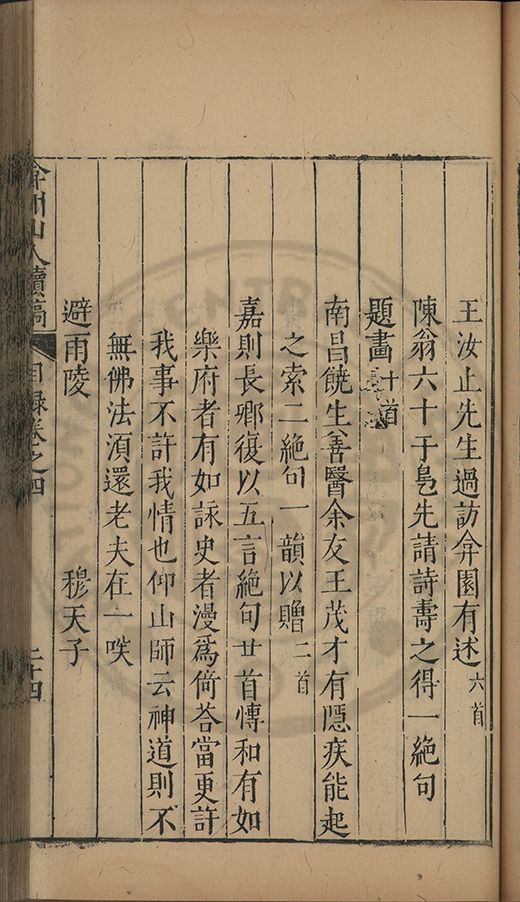 王汝止先生過訪弇園有述六首
陳翁六十于㲋先請詩壽之得一絶句
題畫十首
南昌饒生善醫余友王茂才有隱疾能起
之索二絶句一韻以贈二首
嘉則長鄉復以五言絶句廿首慱和有如
樂府者有如詠史者漫爲倚荅當更許
我事不許我情也仰山師云神道則不
無佛法湏還老夫在一咲
避雨陵 穆天子
弇州山人續稿 目録卷之四 二十四